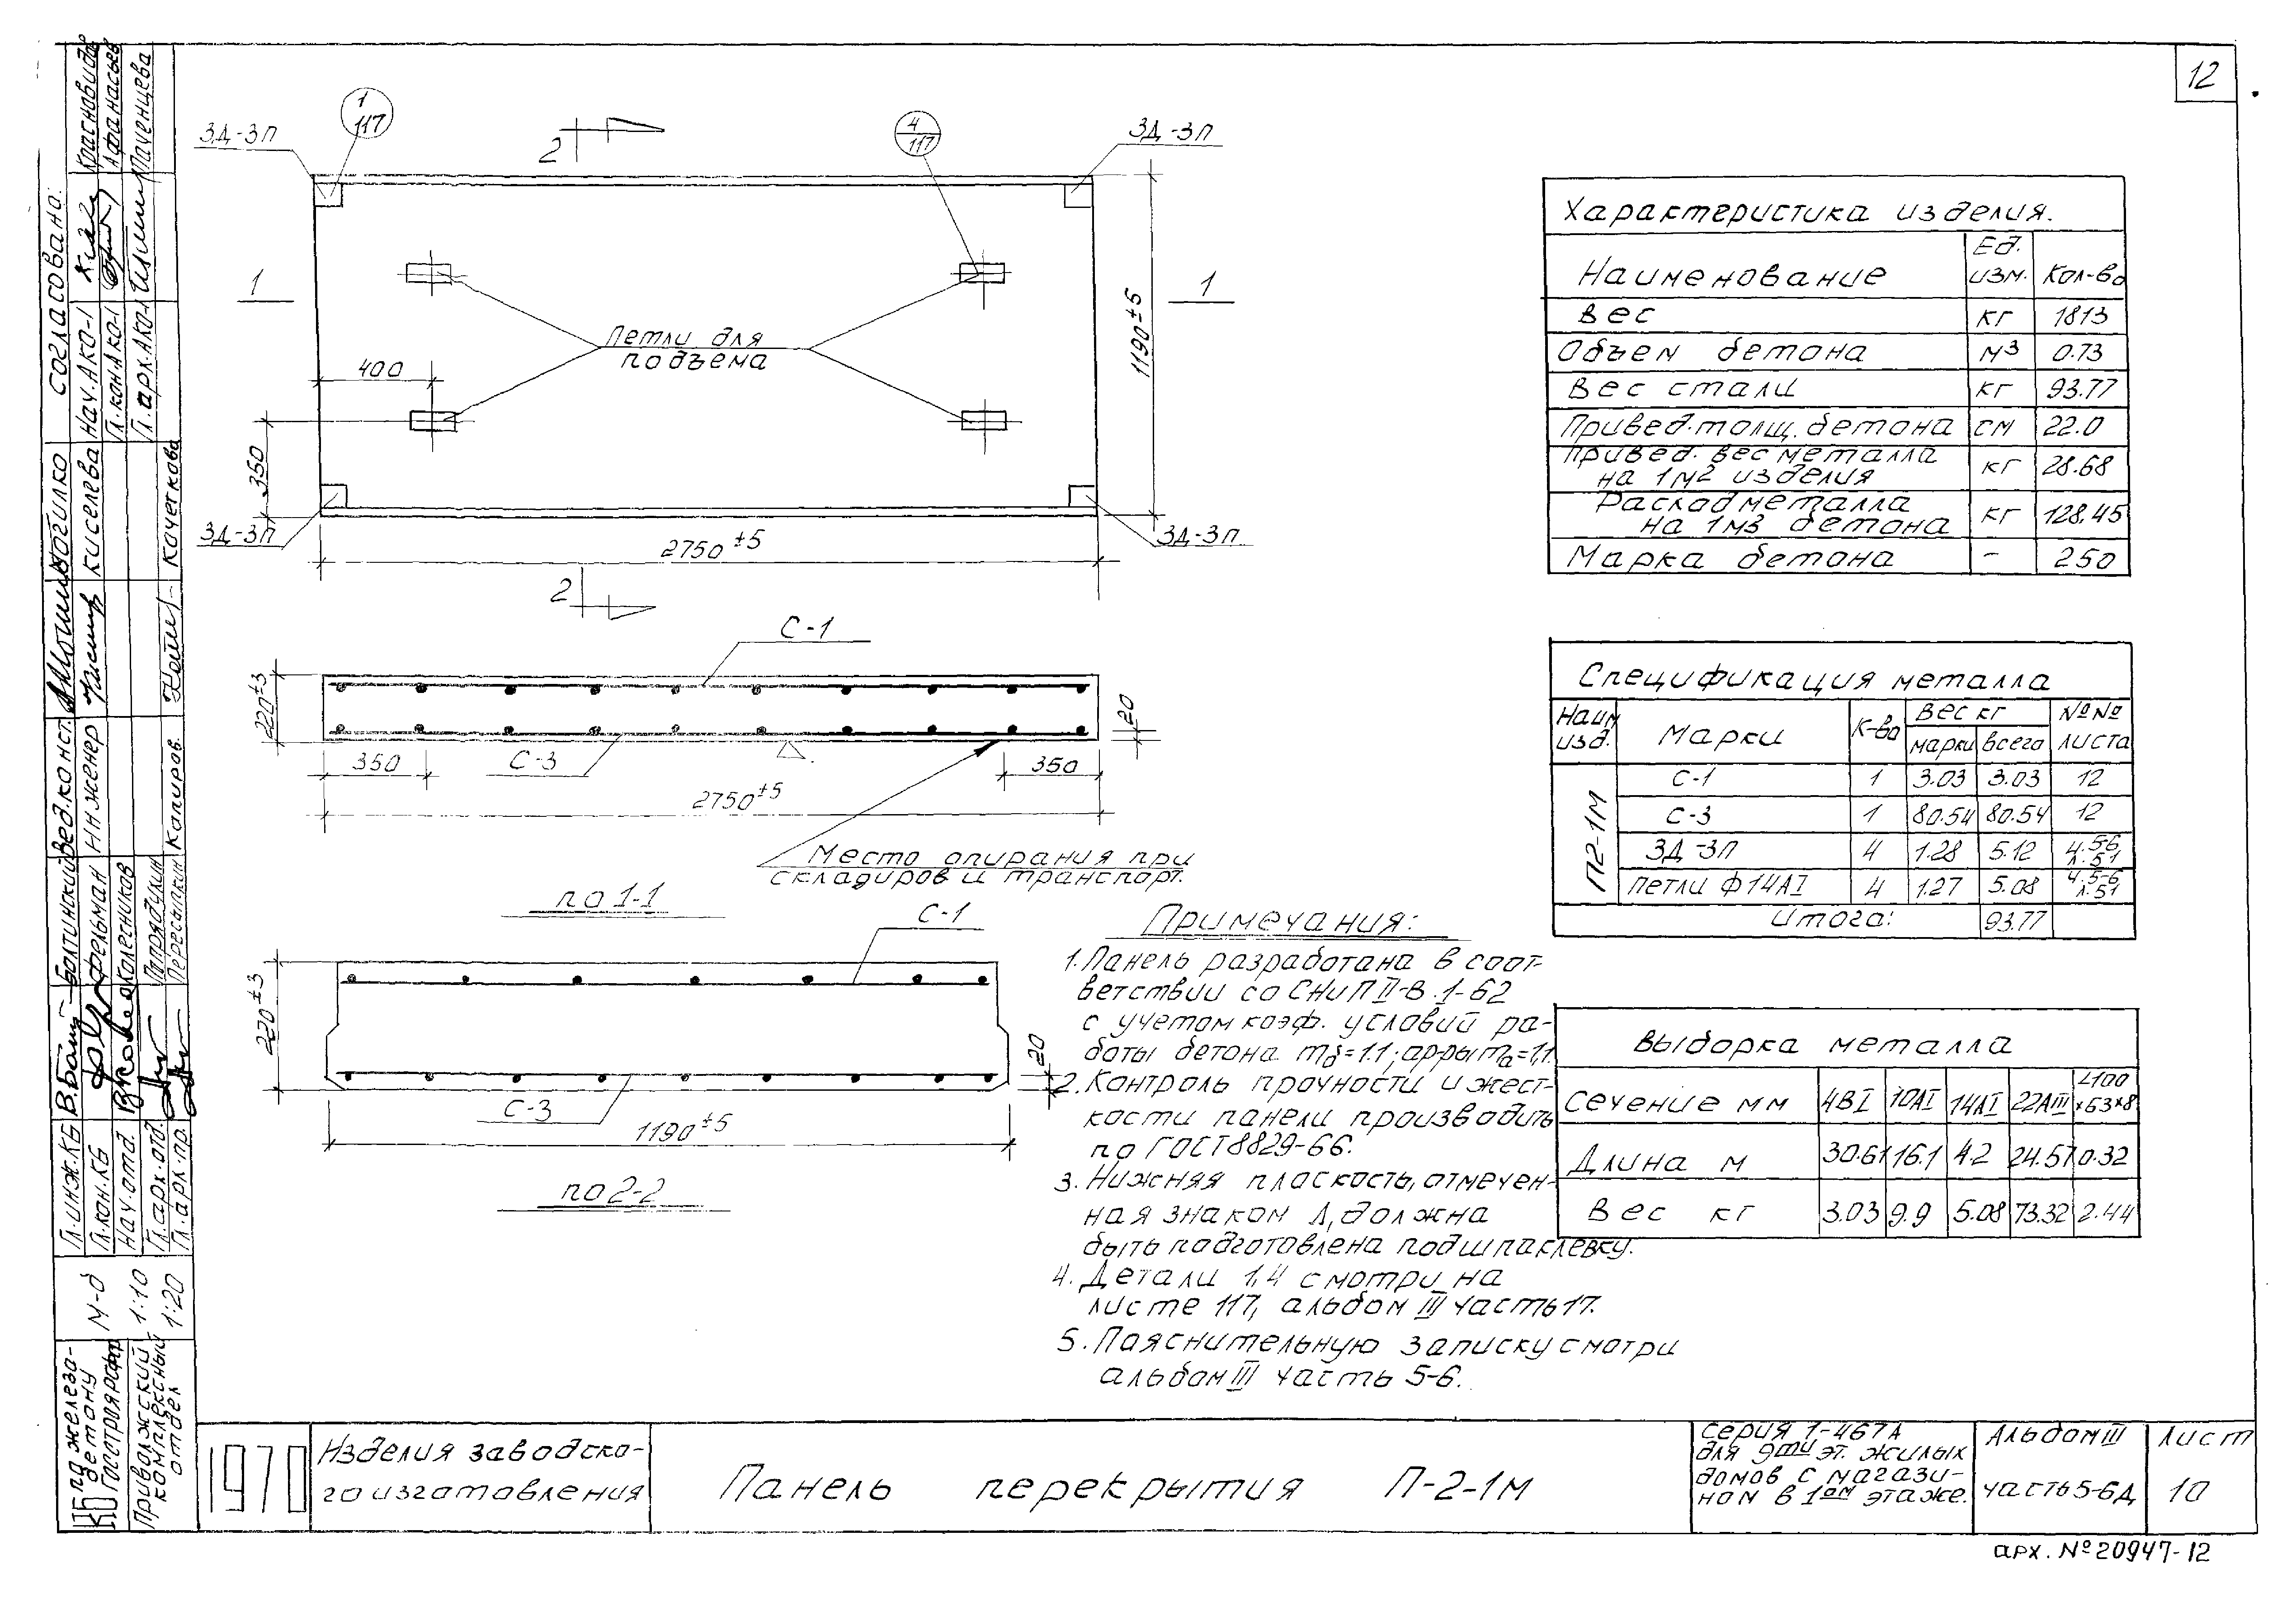 12
1
117
4
117
ЗД-3П
ЗД-3П
2
1
1
Петли для
подъема
400
350
1190±5
ЗД-3П
ЗД-3П
2750±5
2
С-1
220±3
20
350
С-3
350
2750±5
Место опирания при
складиров и транспорт.
по 1-1
С-1
220±3
20
С-3
1190±5
по 2-2
Примечания:
1. Панель разработана в соот-
ветствии со СНиП II-В.1-62
с учетом коэф. условий ра-
боты бетона mб=1.1; ар-ры mа=1,1.
2. Контроль прочности и жест-
кости панели производить
по ГОСТ 8829-66.
3. Нижняя плоскость, отмечен-
ная знаком Λ, должна
быть подготовлена под шпаклевку.
4. Детали 1,4 смотри на
листе 117, альбом III часть 17.
5. Пояснительную записку смотри
альбом III часть 5-6.
Характеристика изделия.
Наименование Ед. изм. Кол-во
Вес кг 1813
Объем бетона м3 0.73
Вес стали кг 93.77
Привед. толщ. бетона см 22.0
Привед. вес металла
на 1м2 изделия кг 28.68
Расход металла
на 1м3 бетона кг 128.45
Марка бетона - 250
Спецификация металла
Наим. изд. Марки К-во Вес кг №№
марки всего листа
П2-1М
С-1 1 3.03 3.03 12
С-3 1 80.54 80.54 12
ЗД-3П 4 1.28 5.12 ч.5-6 л.51
петли ф14АI 4 1.27 5.08 ч.5-6 л.51
Итого: 93.77
Выборка металла
Сечение мм 4ВI 10АI 14АI 22АIII L100×63×8
Длина м 30.61 16.1 4.2 24.57 0.32
Вес кг 3.03 9.9 5.08 73.32 2.44
Согласовано:
Нач. АКО-1 Красновидов
Гл. кон. АКО-1 Афанасьев
Гл. арх. АКО-1 Мауенцева
Вед. конст. Могилко
Инженер Киселева
Копиров. Кочеткова
Гл. инж. КБ Болтинский
Гл. кон. КБ Фельман
Нач. отд. Колесников
Гл. арх. отд. Папрядулин
Гл. арх. пр. Пересыпкин
М-б
1:10
1:20
КБ по железо-
бетону
Госстроя РСФСР
Приволжский
комплексный
отдел
1970
Изделия заводско-
го изготовления
Панель перекрытия П-2-1м
Серия 1-467А
для 9ти эт. жилых
домов с магази-
ном в 1ом этаже.
Альбом III
часть 5-6Д
Лист
10
арх. № 20947-12